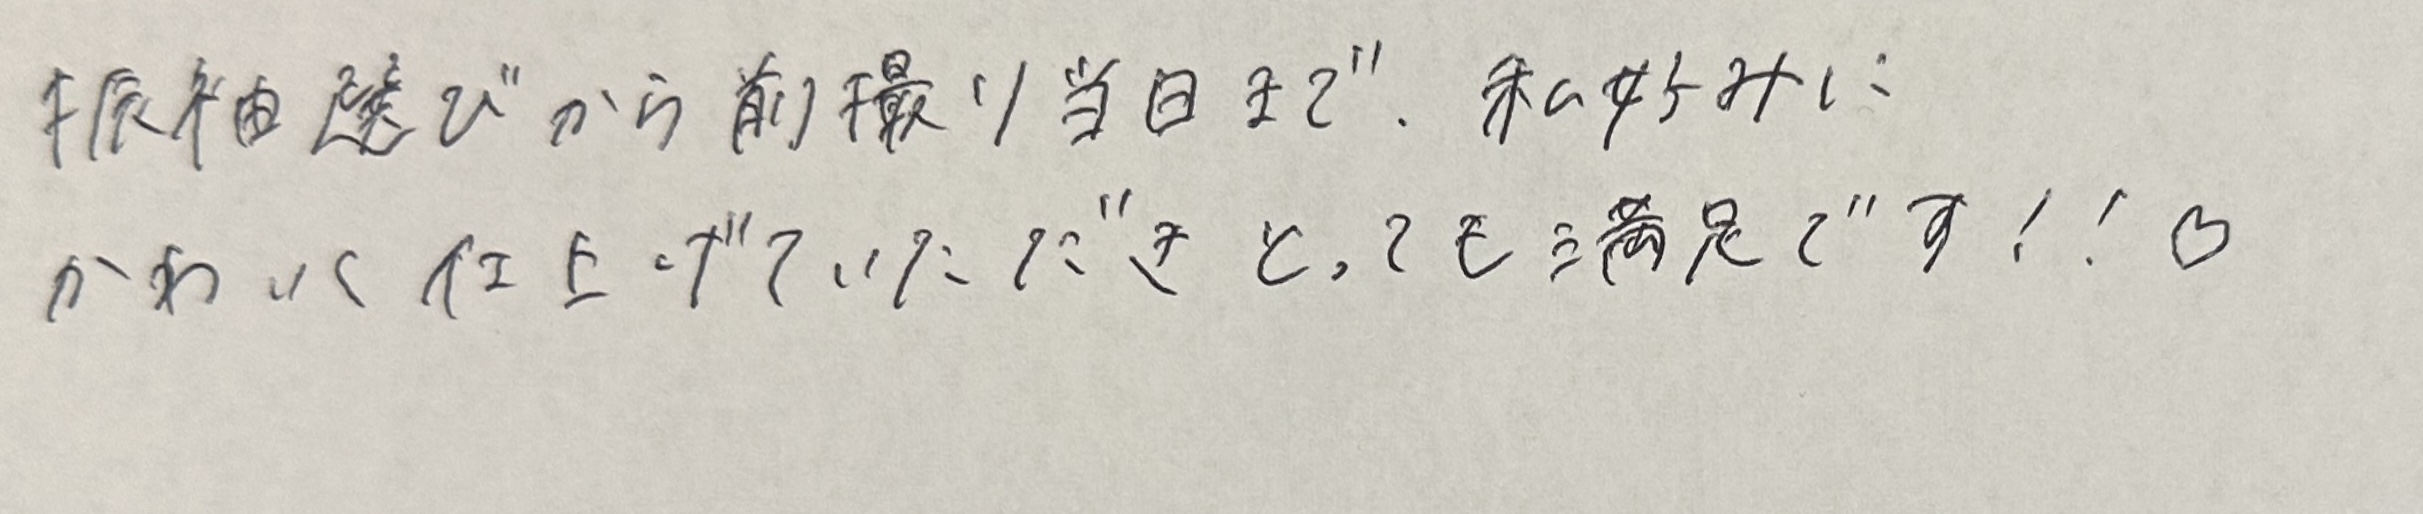 振袖選びから前撮り当日まで、私好みに
かわいく仕上げていただきとっても満足です!!♡